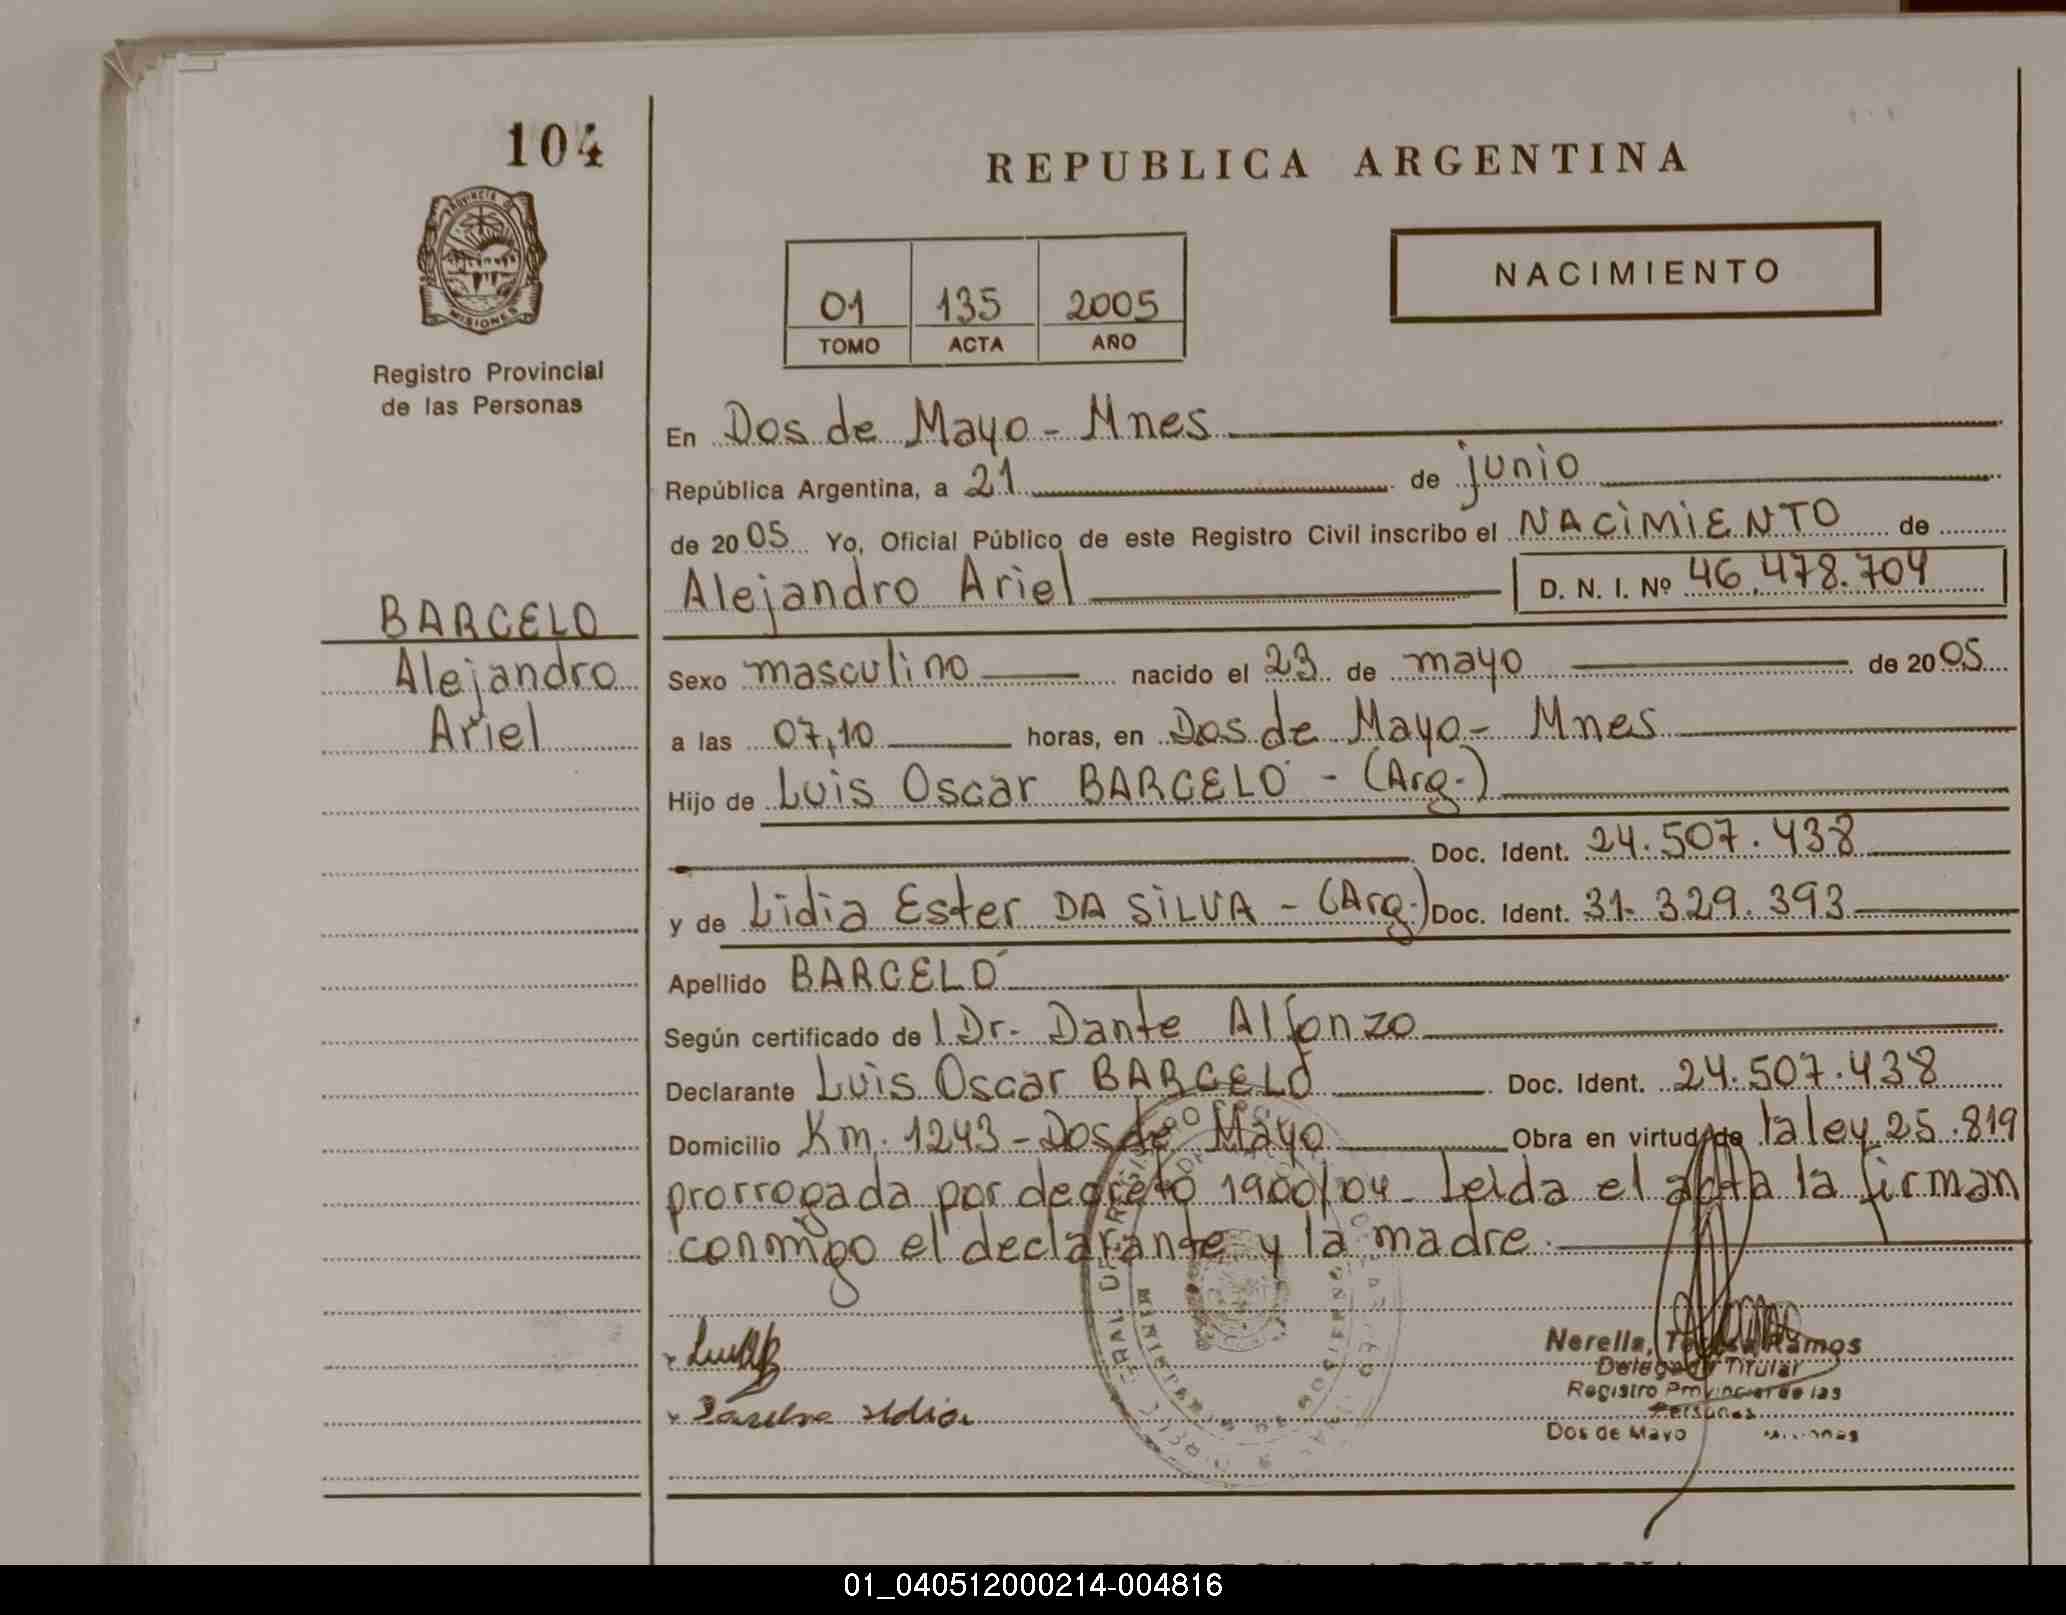 104
REPUBLICA ARGENTINA
PROVINCIA DE
MISIONES
NACIMIENTO
01 135 2005
TOMO ACTA AÑO
Registro Provincial
de las Personas
En Dos de Mayo - Mnes
República Argentina, a 21 de junio
de 2005 Yo, Oficial Público de este Registro Civil inscribo el NACIMIENTO de
Alejandro Ariel D. N. I. Nº 46.478.704
BARCELO
Alejandro
Ariel
Sexo masculino nacido el 23 de mayo de 2005
a las 07,10 horas, en Dos de Mayo - Mnes
Hijo de Luis Oscar BARCELÓ - (Arg.)
Doc. Ident. 24.507.438
y de Lidia Ester DA SILVA - (Arg.) Doc. Ident. 31.329.393
Apellido BARCELÓ
Según certificado de l Dr. Dante Alfonzo
Declarante Luis Oscar BARCELÓ Doc. Ident. 24.507.438
Domicilio Km. 1243 - Dos de Mayo Obra en virtud de la ley 25.819
prorrogada por decreto 1900/04 - Leída el acta la firman
conmigo el declarante y la madre.
Nerella, Ramos
Delegada Titular
Registro Provincial de las
Personas
Dos de Mayo Misiones
01_040512000214-004816